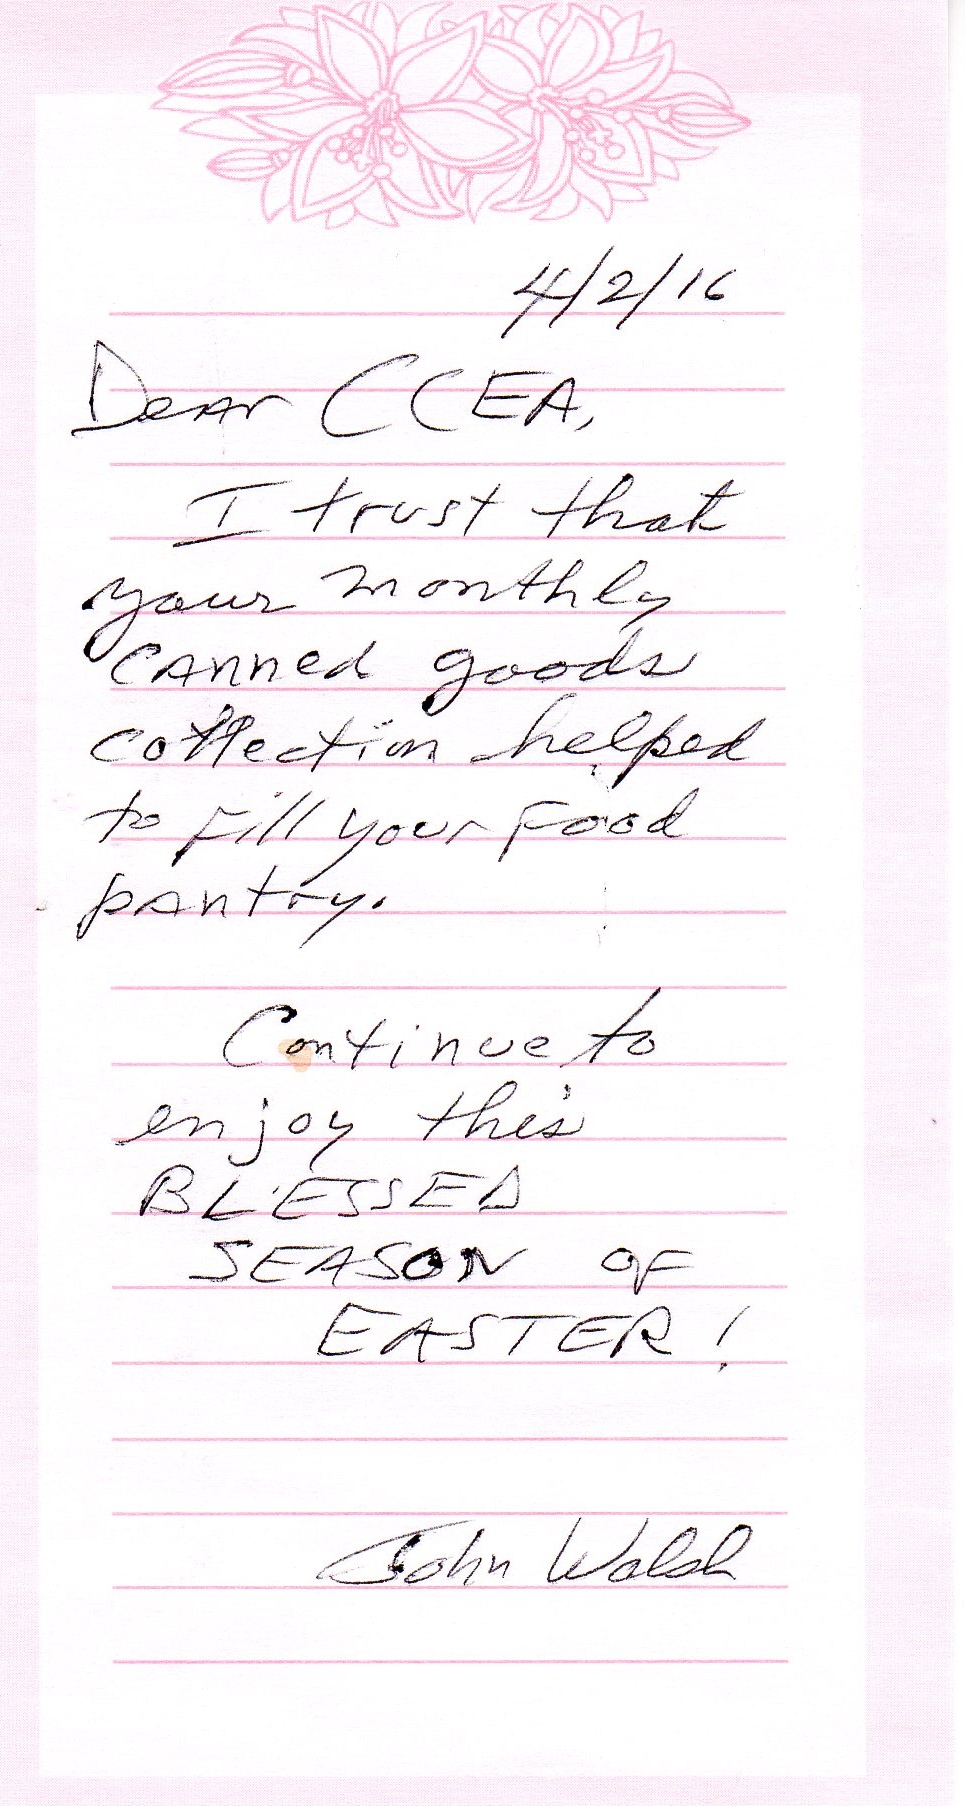 4/2/16
Dear CCEA,
I trust that
your monthly
canned goods
collection helped
to fill your food
pantry.
Continue to
enjoy this
BLESSED
SEASON OF
EASTER!
John Walsh